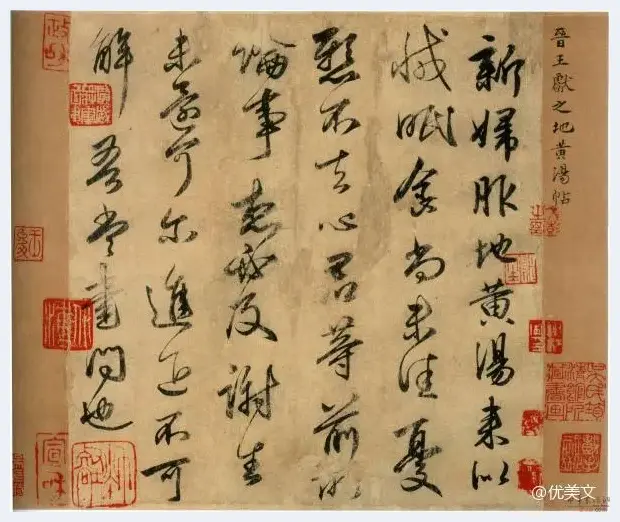 晉王獻之地黃湯帖
新婦服地黃湯來似
減眠食尚未佳憂
懸不去心君等前所
論事想必及謝生
未還可爾進退不可
解吾當書問也
政和
宣和
@优美文